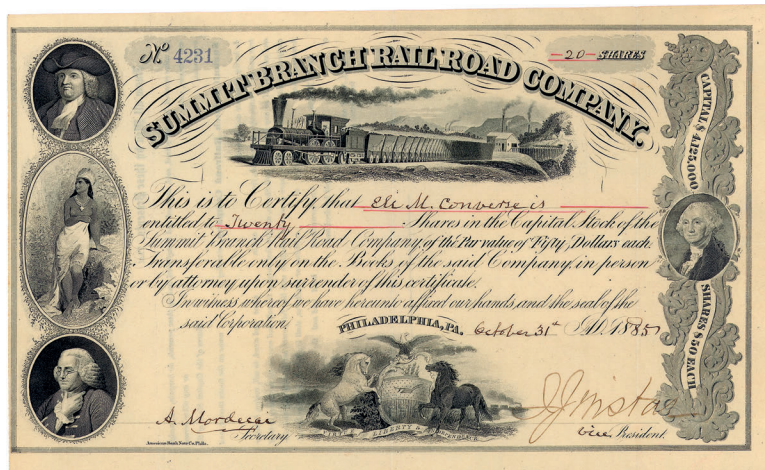 No 4231
20 SHARES
SUMMIT BRANCH RAIL ROAD COMPANY.
CAPITAL $ 4,125,000
This is to Certify, that Eli M. Converse is
entitled to Twenty Shares in the Capital Stock of the
Summit Branch Rail Road Company of the Par value of Fifty Dollars each.
Transferable only on the Books of the said Company, in person
or by attorney upon surrender of this certificate.
In witness whereof we have hereunto affixed our hands, and the seal of the
said Corporation.
PHILADELPHIA, PA. October 31st A.D. 1885
SHARES $ 50 EACH
A. Mordecai
Secretary
VIRTUE LIBERTY & INDEPENDENCE
Vice President
American Bank Note Co. Phila.